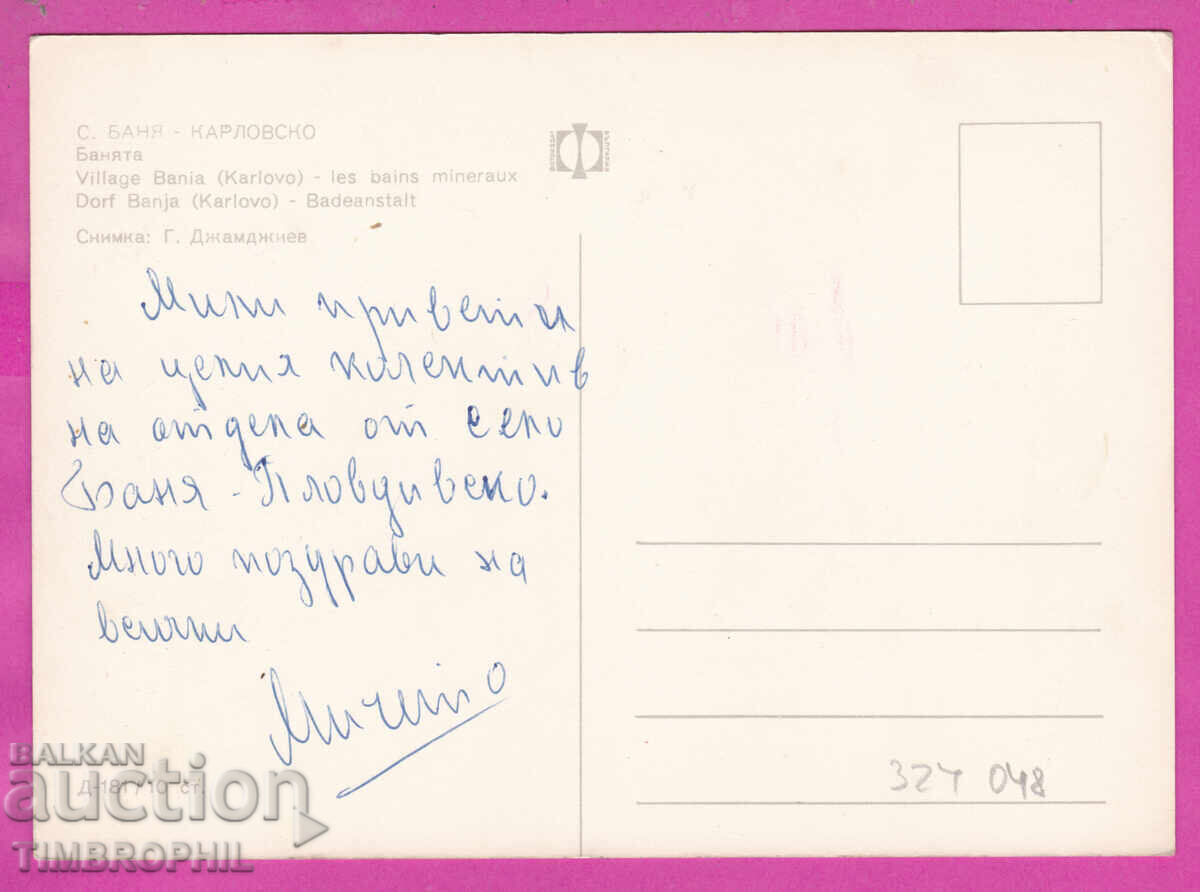 С. БАНЯ - КАРЛОВСКО
Банята
Village Bania (Karlovo) - les bains mineraux
Dorf Banja (Karlovo) - Badeanstalt
Снимка: Г. Джамджиев
Мили привети
на целия колектив
на отдела от село
Баня - Пловдивско.
Много поздрави на
всички
Мичето
Д-181/10 ст.
324 048
BALKAN
auction
TIMBROPHIL